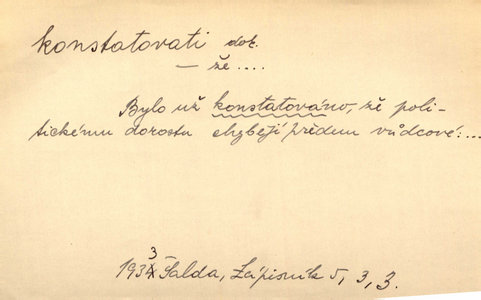 konstatovati dok.
— že ....
Bylo už konstatováno, že poli-
tickému dorostu chybějí předem vůdcové: ...
1933 Šalda, Zápisník 5, 3, 3.